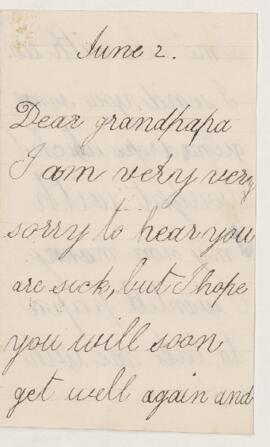 June 2.
Dear grandpapa
I am very very
sorry to hear you
are sick, but I hope
you will soon
get well again and